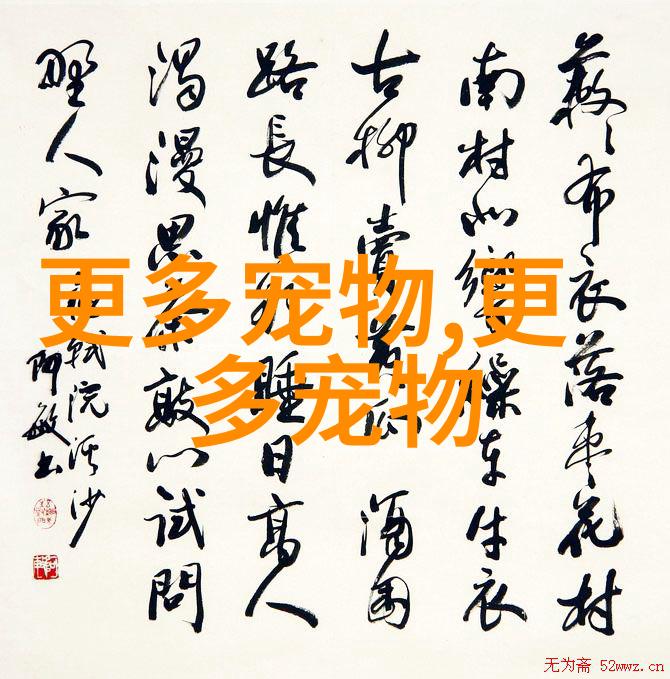 蔌〻布衣落枣花村
南村北響繰車牛衣
古柳賣黃瓜 酒困
路長惟欲睡日高人
渴漫思茶敲門試問
野人家 蘇軾浣溪沙
阿敏书
更多宠物,更
多宠物
无为斋 52wwz.cn